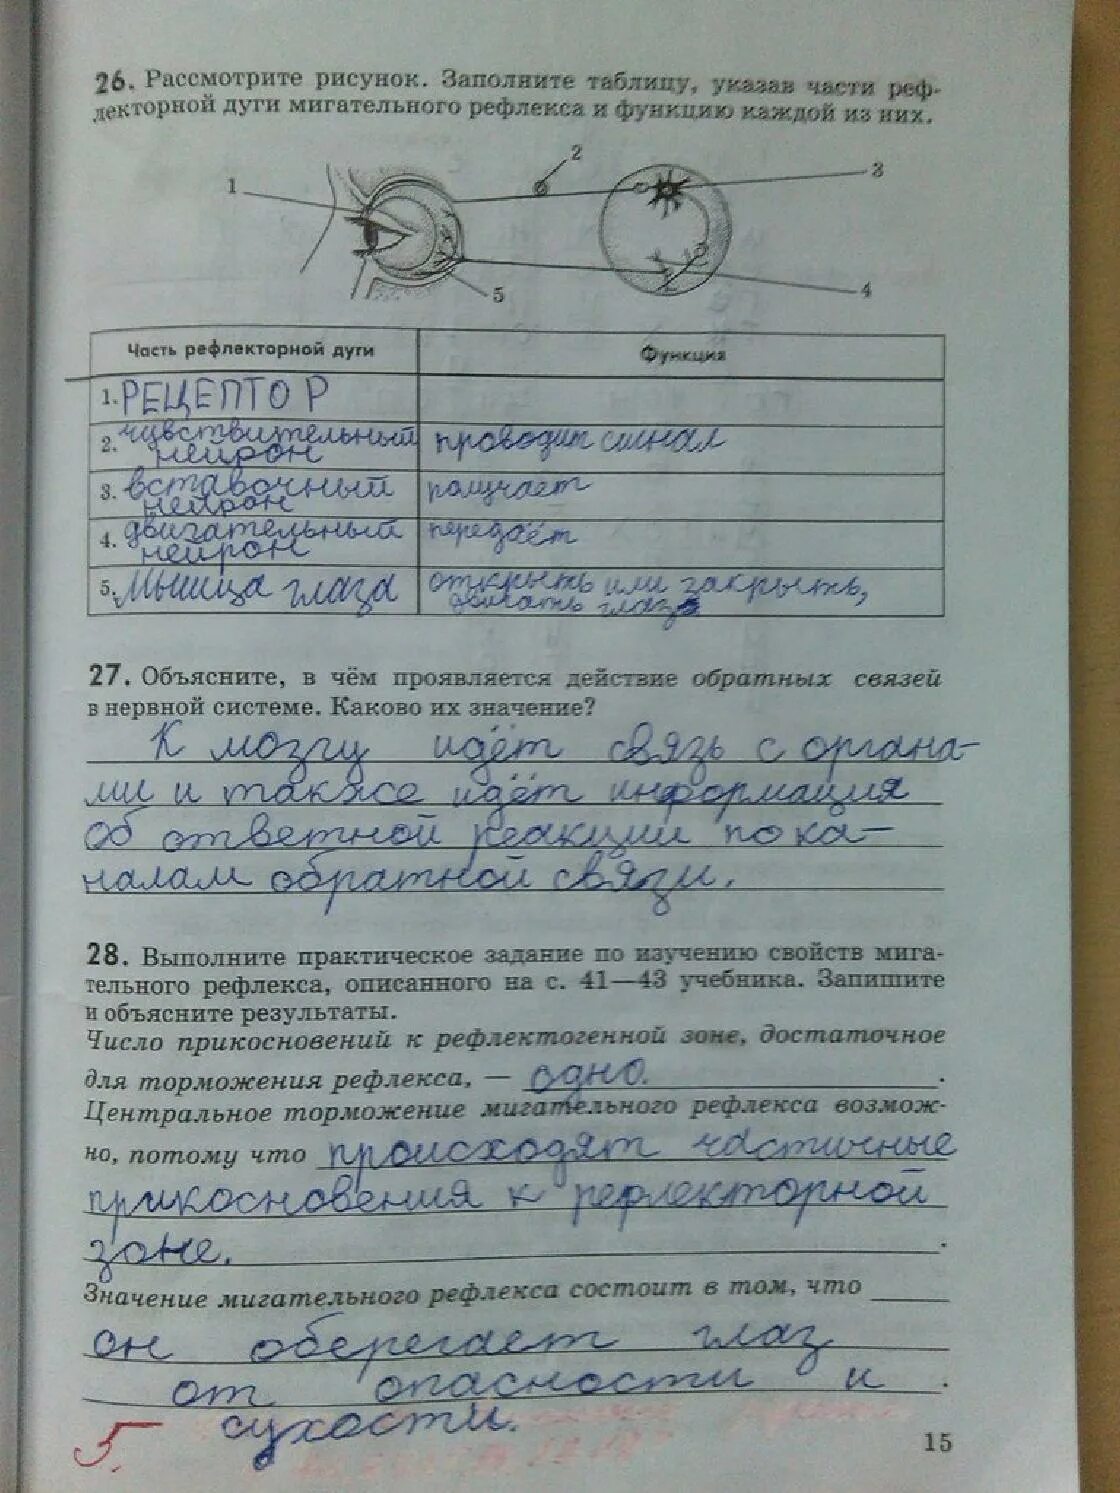 26. Рассмотрите рисунок. Заполните таблицу, указав части реф-
лекторной дуги мигательного рефлекса и функцию каждой из них.
1
2
3
4
5
Часть рефлекторной дуги Функция
1. РЕЦЕПТОР
2. чувствительный нейрон проводит сигнал
3. вставочный нейрон получает
4. двигательный нейрон передаёт
5. Мышца глаза открыть или закрыть,
двигать глаза
27. Объясните, в чём проявляется действие обратных связей
в нервной системе. Каково их значение?
К мозгу идёт связь с органа-
ми и также идёт информация
об ответной реакции по ка-
налам обратной связи.
28. Выполните практическое задание по изучению свойств мига-
тельного рефлекса, описанного на с. 41—43 учебника. Запишите
и объясните результаты.
Число прикосновений к рефлектогенной зоне, достаточное
для торможения рефлекса, — одно.
Центральное торможение мигательного рефлекса возмож-
но, потому что происходят частичные
прикосновения к рефлекторной
зоне.
Значение мигательного рефлекса состоит в том, что
он оберегает глаз
от опасности и
сухости.
5.
15